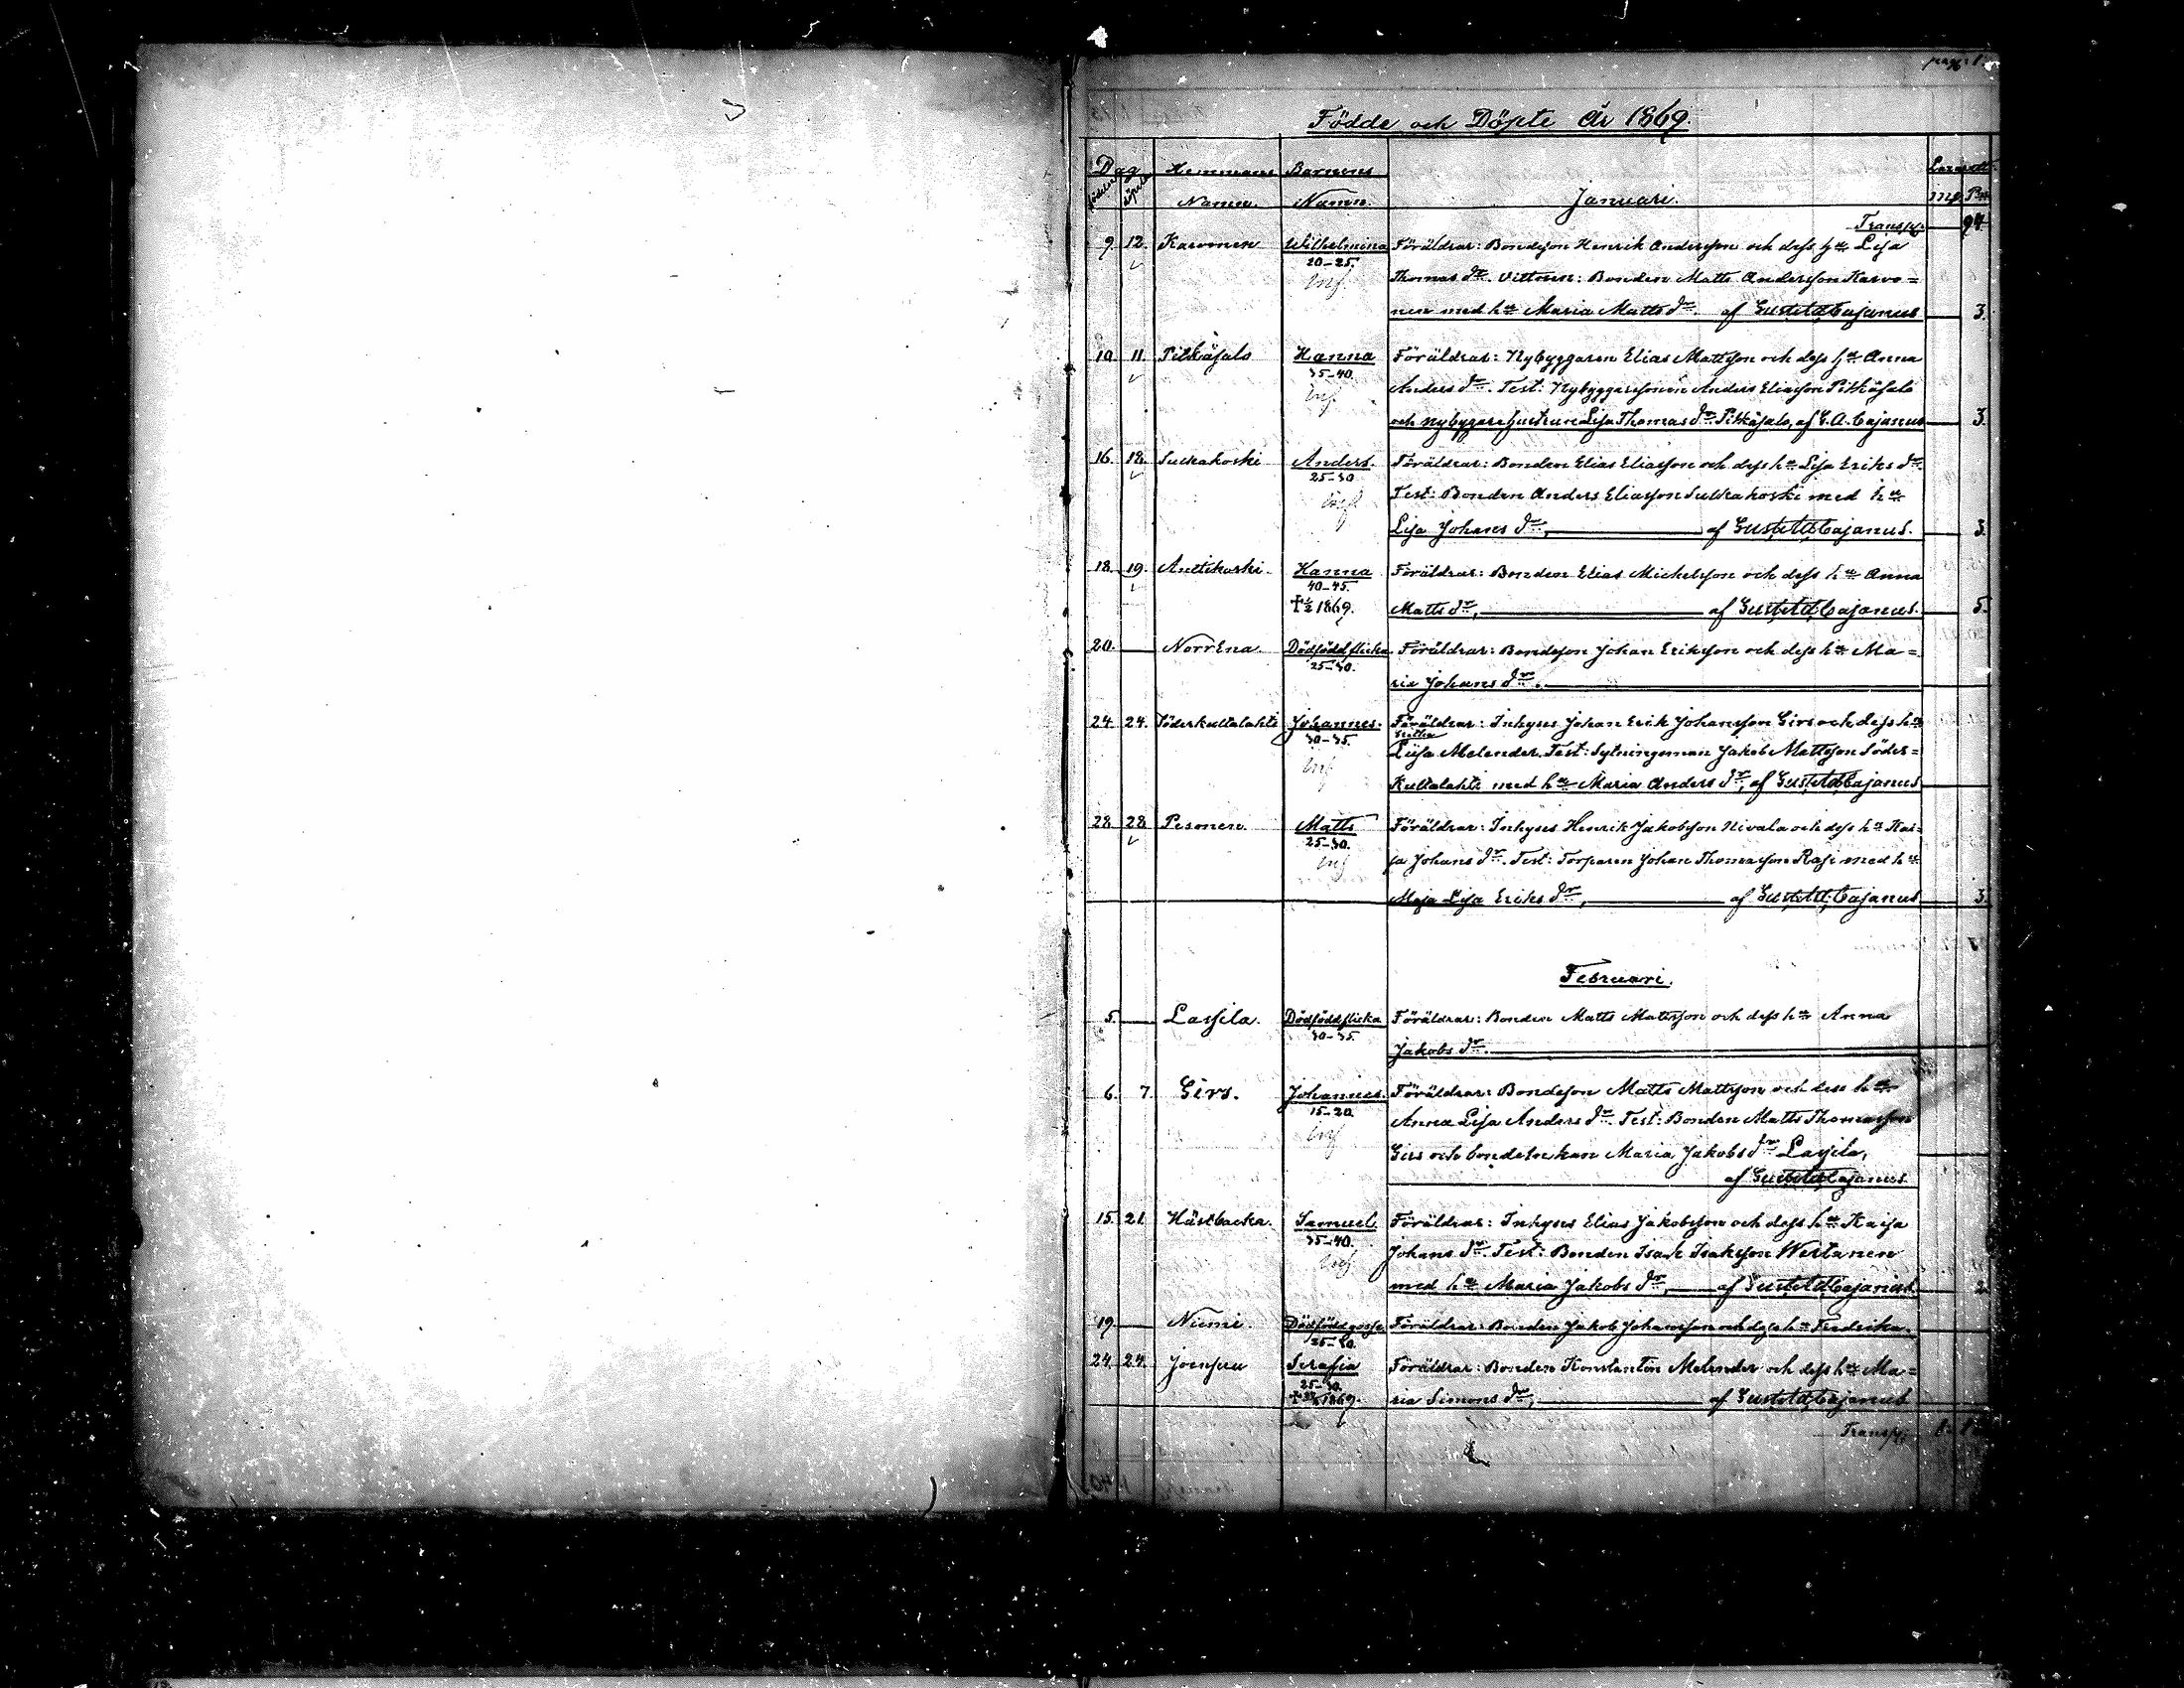 Födde och Döpte År 1869.
Dag Hemmans Barnens
födelse döpelse Namn. Namn. Januari. Mk. Pni
Transp: 94.
9. 12. Karvonen Wilhelmina Föräldrar: Bondeson Henrik Andersson och dess hu Lisa
20-25. Thomas dr. Vittnen: Bonden Matts Andersson Karvo=
inf. nen med hu Maria Matts dr. af Gust. Ad. Cajanus 3.
10 11. Pitkäsalo Hanna Föräldrar: Nybyggaren Elias Mattsson och dess hu Anna
35-40. Anders dr. Test: Nybyggaresonen Anders Eliasson Pitkäsalo
inf. och nybyggarehustrun Lisa Thomas dr Pitkäsalo, af G. A. Cajanus 3.
16. 18. Suckakoski Anders. Föräldrar: Bonden Elias Eliasson och dess hu Lisa Eriks dr.
25-30 Test: Bonden Anders Eliasson Sukkakoski med hu
inf. Lisa Johans dr, af Gust. Ad. Cajanus. 3.
18. 19. Anttikoski. Hanna Föräldrar: Bonden Elias Michelsson och dess hu Anna
40-45.
1869. Matts dr, af Gust. Ad. Cajanus. 5.
20. Norrena. Dödfödd flicka Föräldrar: Bondeson Johan Eriksson och dess hu Ma=
25-30. ria Johans dr.
24. 24. Söderkultalahti Johannes. Föräldrar: Inhyses Johan Erik Johansson Girs och dess hu
30-35. Lisa Melender. Test: Sytningsman Jakob Mattsson Söder=
inf. Kultalahti med hu Maria Anders dr, af Gust. Ad. Cajanus
28 28 Pesonen. Matts Föräldrar: Inhyses Henrik Jakobsson Nivala och dess hu Kai=
25-30. sa Johans dr. Test: Torparen Johan Thomasson Rasi med hu
inf. Maja Lisa Eriks dr, af Gust. Ad. Cajanus 3.
Februari.
5. Lassila. Dödfödd flicka Föräldrar: Bonden Matts Mattsson och dess hu Anna
30-35. Jakobs dr.
6. 7. Girs. Johannes. Föräldrar: Bondeson Matts Mattsson och dess hu
15-20. Anna Lisa Anders dr. Test: Bonden Matts Thomasson
inf. Girs och bondeenkan Maria Jakobs dr Lassila,
af Gust. Ad. Cajanus.
15. 21 Hästbacka. Samuel Föräldrar: Inhyses Elias Jakobsson och dess hu Kaisa
35-40. Johans dr. Test: Bonden Isak Isaksson Wertanen
inf. med hu Maria Jakobs dr, af Gust. Ad. Cajanus. 2.
19. Niemi. Dödfödd gosse Föräldrar: Bonden Jakob Johansson och dess hu Fredrika.
25-30.
24. 24. Joensuu Serafia Föräldrar: Bonden Konstantin Melender och dess hu Ma=
25-30.
1869. ria Simons dr, af Gust. Ad. Cajanus
Transp: